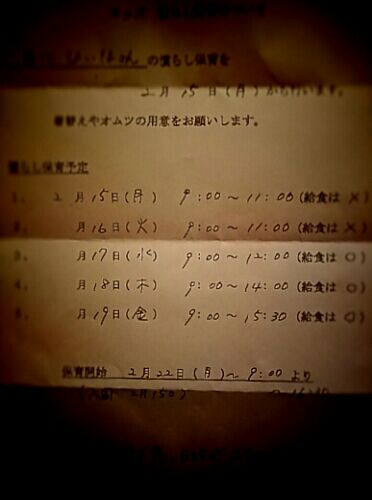 の慣らし保育を
2月15日(月)から行います。
着替えやオムツの用意をお願いします。
慣らし保育予定
1. 2月15日(月) 9:00〜11:00(給食は×)
2. 月16日(火) 9:00〜11:00(給食は×)
3. 月17日(水) 9:00〜12:00(給食は○)
4. 月18日(木) 9:00〜14:00(給食は○)
5. 月19日(金) 9:00〜15:30(給食は○)
保育開始 2月22日(月)〜9:00より